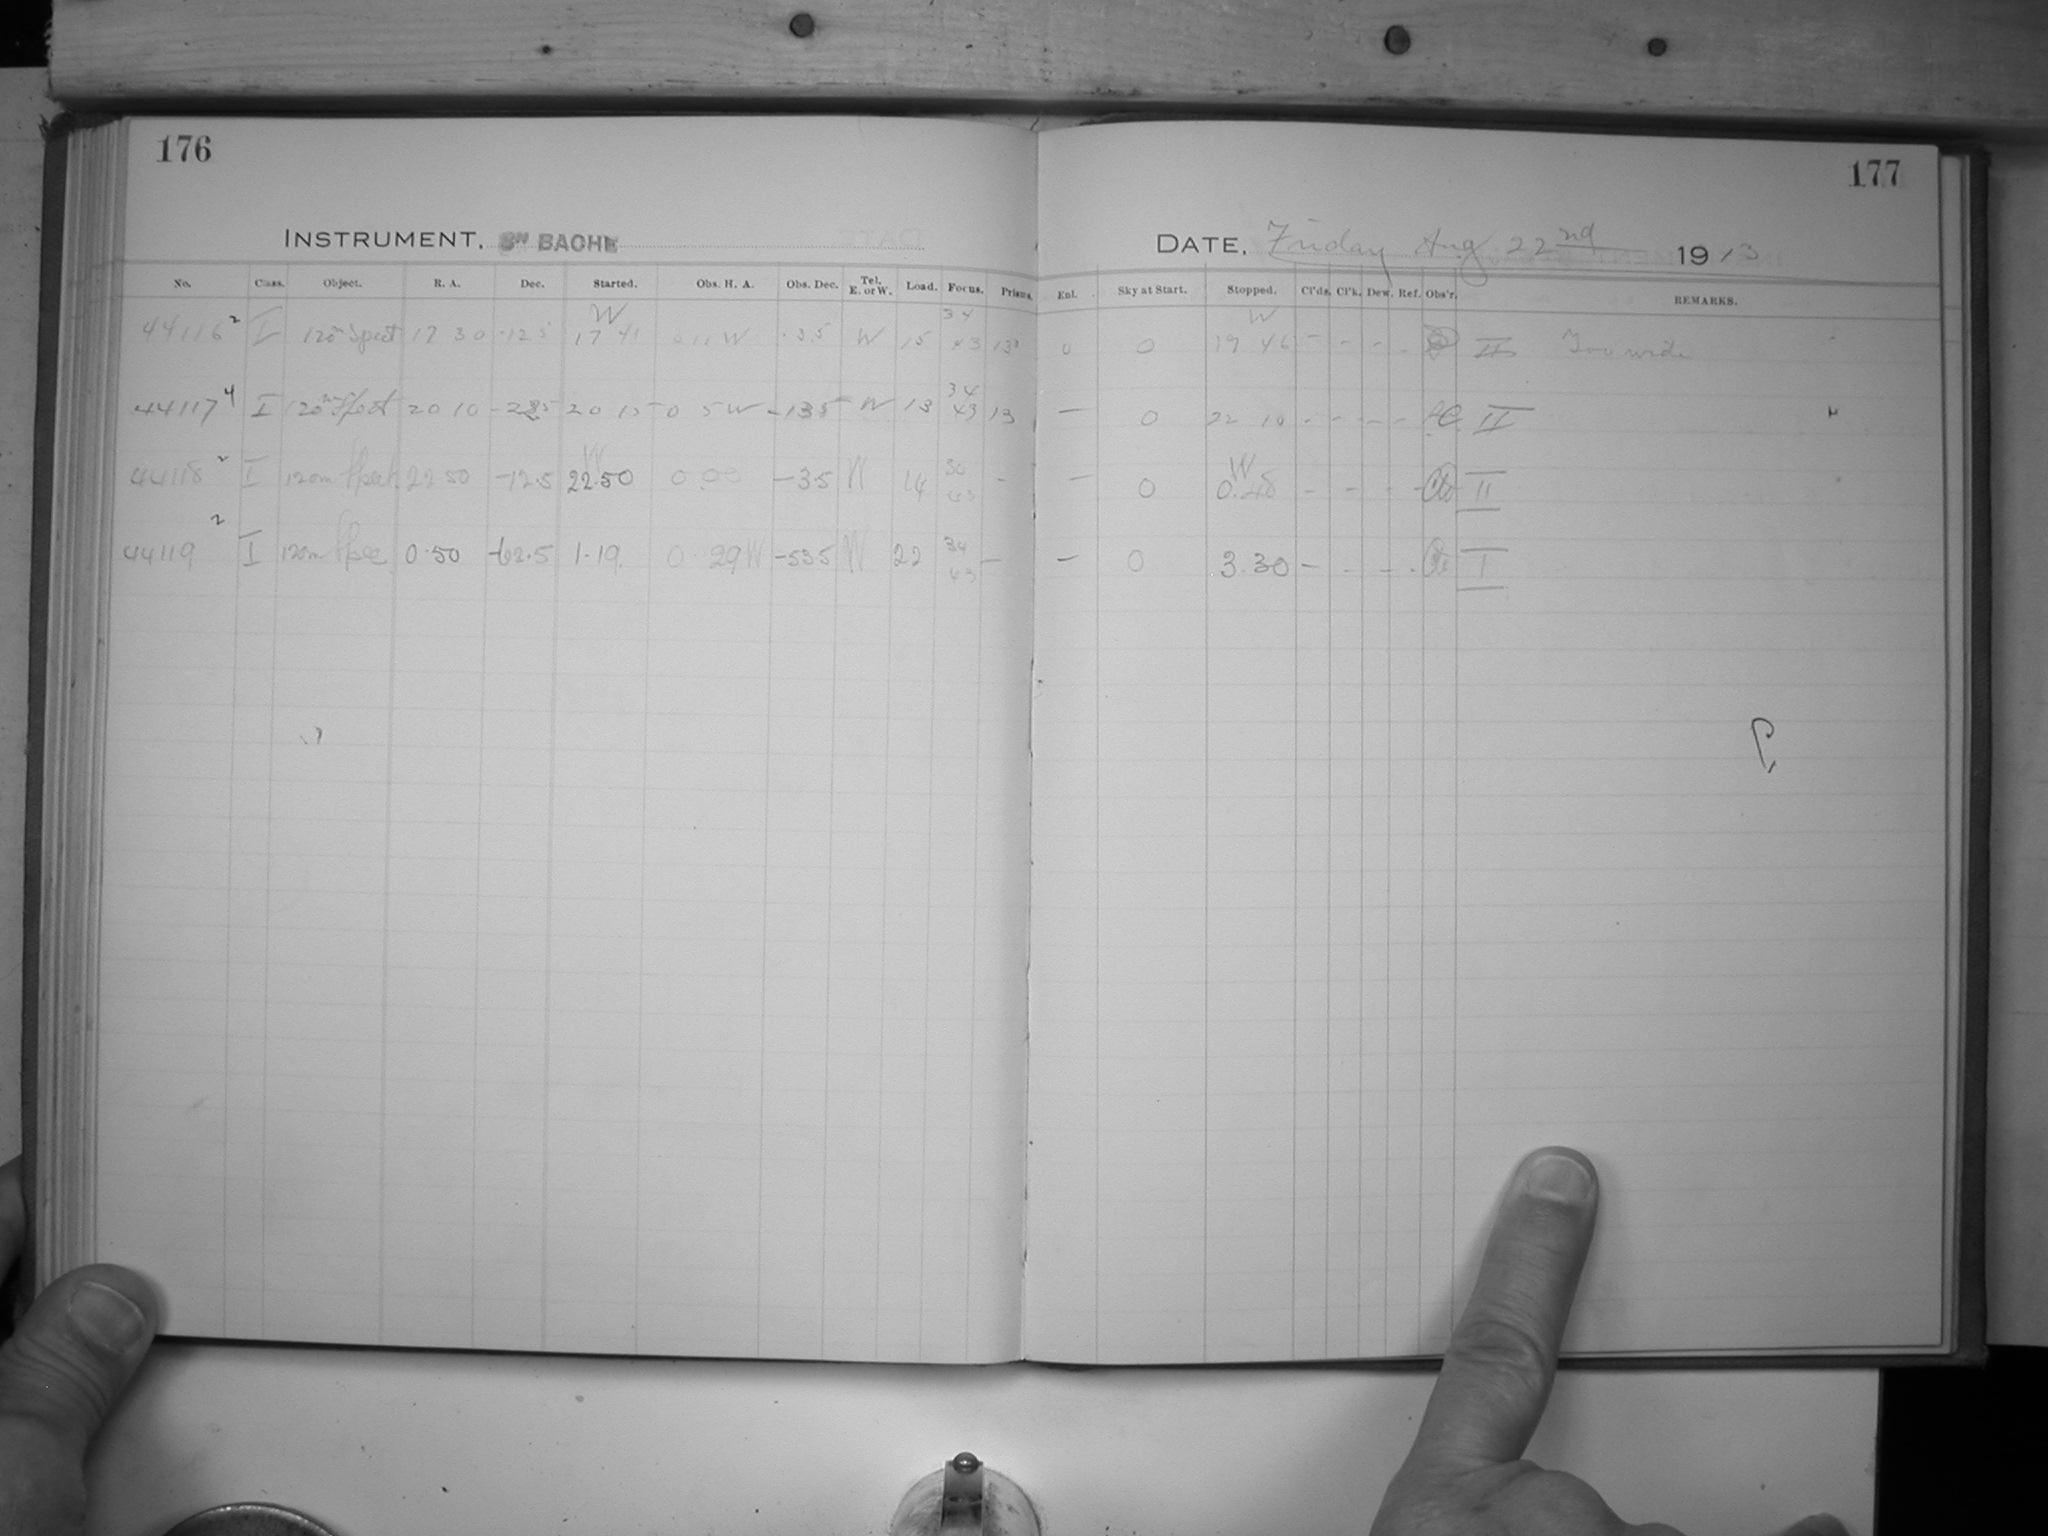 176
177
INSTRUMENT, 8IN BACHE
DATE, Friday Aug 22nd 1913
No. Class. Object. R. A. Dec. Started. Obs. H. A. Obs. Dec. Tel. E. or W. Load. Focus. Prisms. Enl. Sky at Start. Stopped. Cl'ds. Cl'k. Dew. Ref. Obs'r. REMARKS.
44116 2 I 120m Spect 17 30 -12.5 W 17 41 0 11 W -3.5 W 15 34 43 13 0 0 W 19 46 - - - - II Too wide
44117 4 I 120m Spect 20 10 20 15 0 5 W -13.5 W 13 34 43 13 - 0 22 10 - - - - II
44118 2 I 120m Spect 22 50 -12.5 W 22.50 0 00 -3.5 W 14 43 - - 0 W 0.48 - - - - II
44119 2 I 120m Spec 0.50 -62.5 1.19 0 29 W -53.5 W 22 34 43 - - 0 3.30 - - - - I